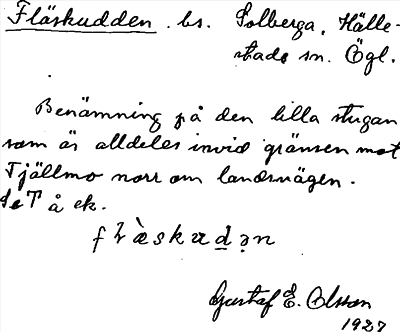 Fläskudden . bs. Solberga, Hälle-
stads sn. Ögl.
Benämning på den lilla stugan
som är alldeles invid gränsen mot
Tjällmo norr om landsvägen.
å ek.
Gustaf E. Olsson
1927